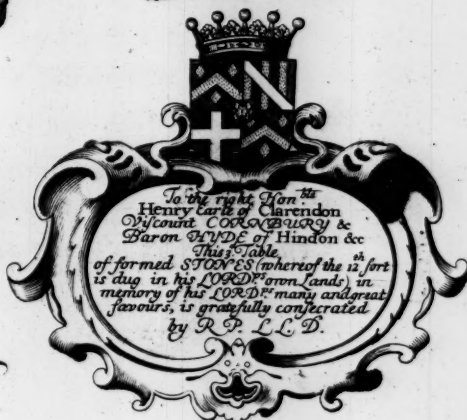 To the right Hon.ble
Henry Earle of Clarendon
Viscount CORNBURY &
Baron HYDE of Hindon &c
This 3. Table
of formed STONES (whereof the 12th sort
is dug in his LORDPs own Lands) in
memory of his LORDPs many and great
favours, is gratefully consecrated
by R. P. L. L. D.